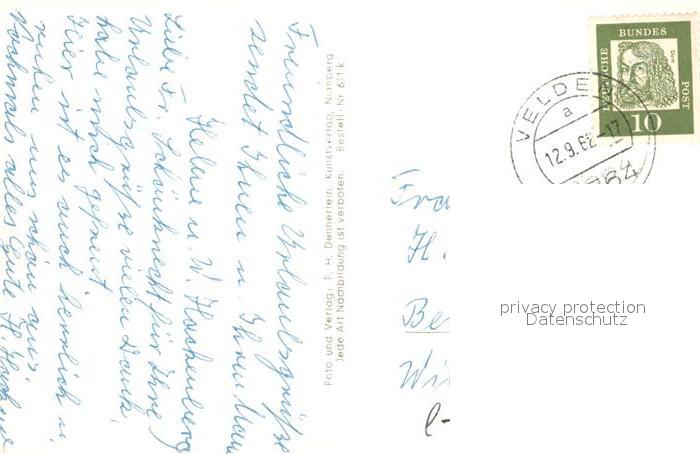 Freundliche Urlaubsgrüße
sendet Ihnen u. Ihrem Mann
Helene u. W. Hachenberg
Liebe Fr. Schönknecht für Ihre
Urlaubsgrüße vielen Dank,
habe mich gefreut
Hier ist es auch herrlich u.
ruhen uns schön aus.
Nochmals alles Gute H. Hachenb
Foto und Verlag: F. H. Dennerlein, Kunstverlag, Nürnberg
Jede Art Nachbildung ist verboten. Bestell-Nr 611 k
DEUTSCHE BUNDESPOST
Dürer
10
VELDE
a
12.9.62-17
Fra
H.
Be
Wi
privacy protection
Datenschutz